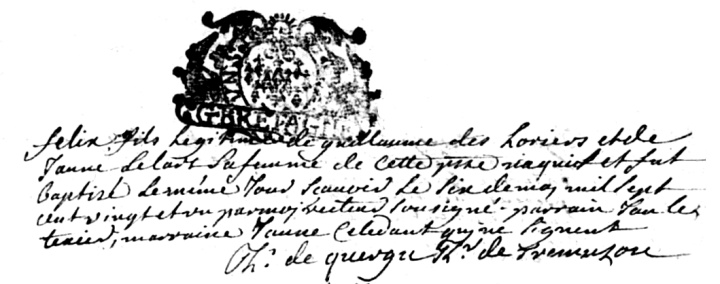 G. BRETAGNE
felix fils legitime de guillaume des horiers et de
Janne Lelart sa femme de cette psse naquist et fut
Baptisé le même Jour Scavoir le Six de maj mil Sept
cent vingt et un par moj recteur sousigné. parrain Jan le
texier, marraine Janne Celedant qui ne signent
Th. de quergu Rr. de Tremuzon